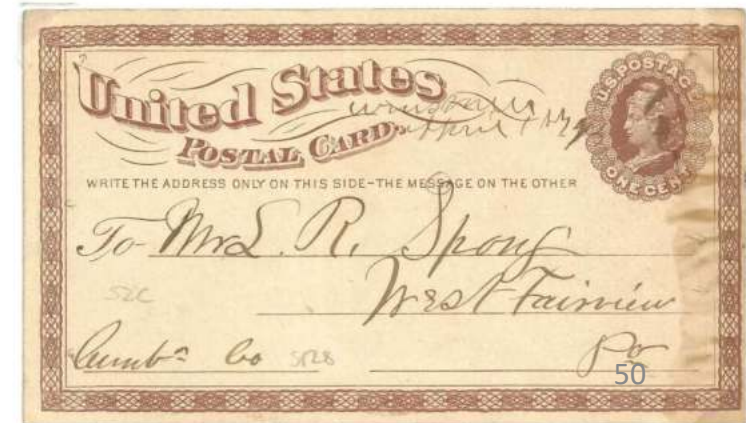 United States
U.S. POSTAGE
April
POSTAL CARD.
ONE CENT
WRITE THE ADDRESS ONLY ON THIS SIDE-THE MESSAGE ON THE OTHER
To Mr L. R. Spong
West Fairview
52C
Cumb Co
Pa
50